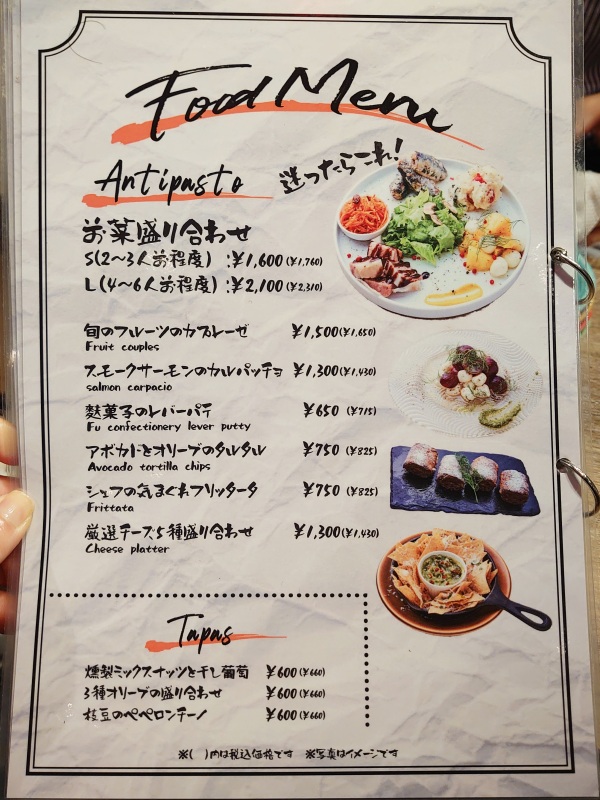 Food Menu
Antipasto
迷ったらこれ!
お菜盛り合わせ
S(2〜3人前程度) :¥1,600(¥1,760)
L(4〜6人前程度) :¥2,100(¥2,310)
旬のフルーツのカプレーゼ ¥1,500(¥1,650)
Fruit couples
スモークサーモンのカルパッチョ ¥1,300(¥1,430)
salmon carpacio
麩菓子のレバーパテ ¥650 (¥715)
Fu confectionery lever putty
アボカドとオリーブのタルタル ¥750 (¥825)
Avocado tortilla chips
シェフの気まぐれフリッタータ ¥750 (¥825)
Frittata
厳選チーズ5種盛り合わせ ¥1,300(¥1,430)
Cheese platter
Tapas
燻製ミックスナッツと干し葡萄 ¥600(¥660)
3種オリーブの盛り合わせ ¥600(¥660)
枝豆のペペロンチーノ ¥600(¥660)
※( )内は税込価格です ※写真はイメージです